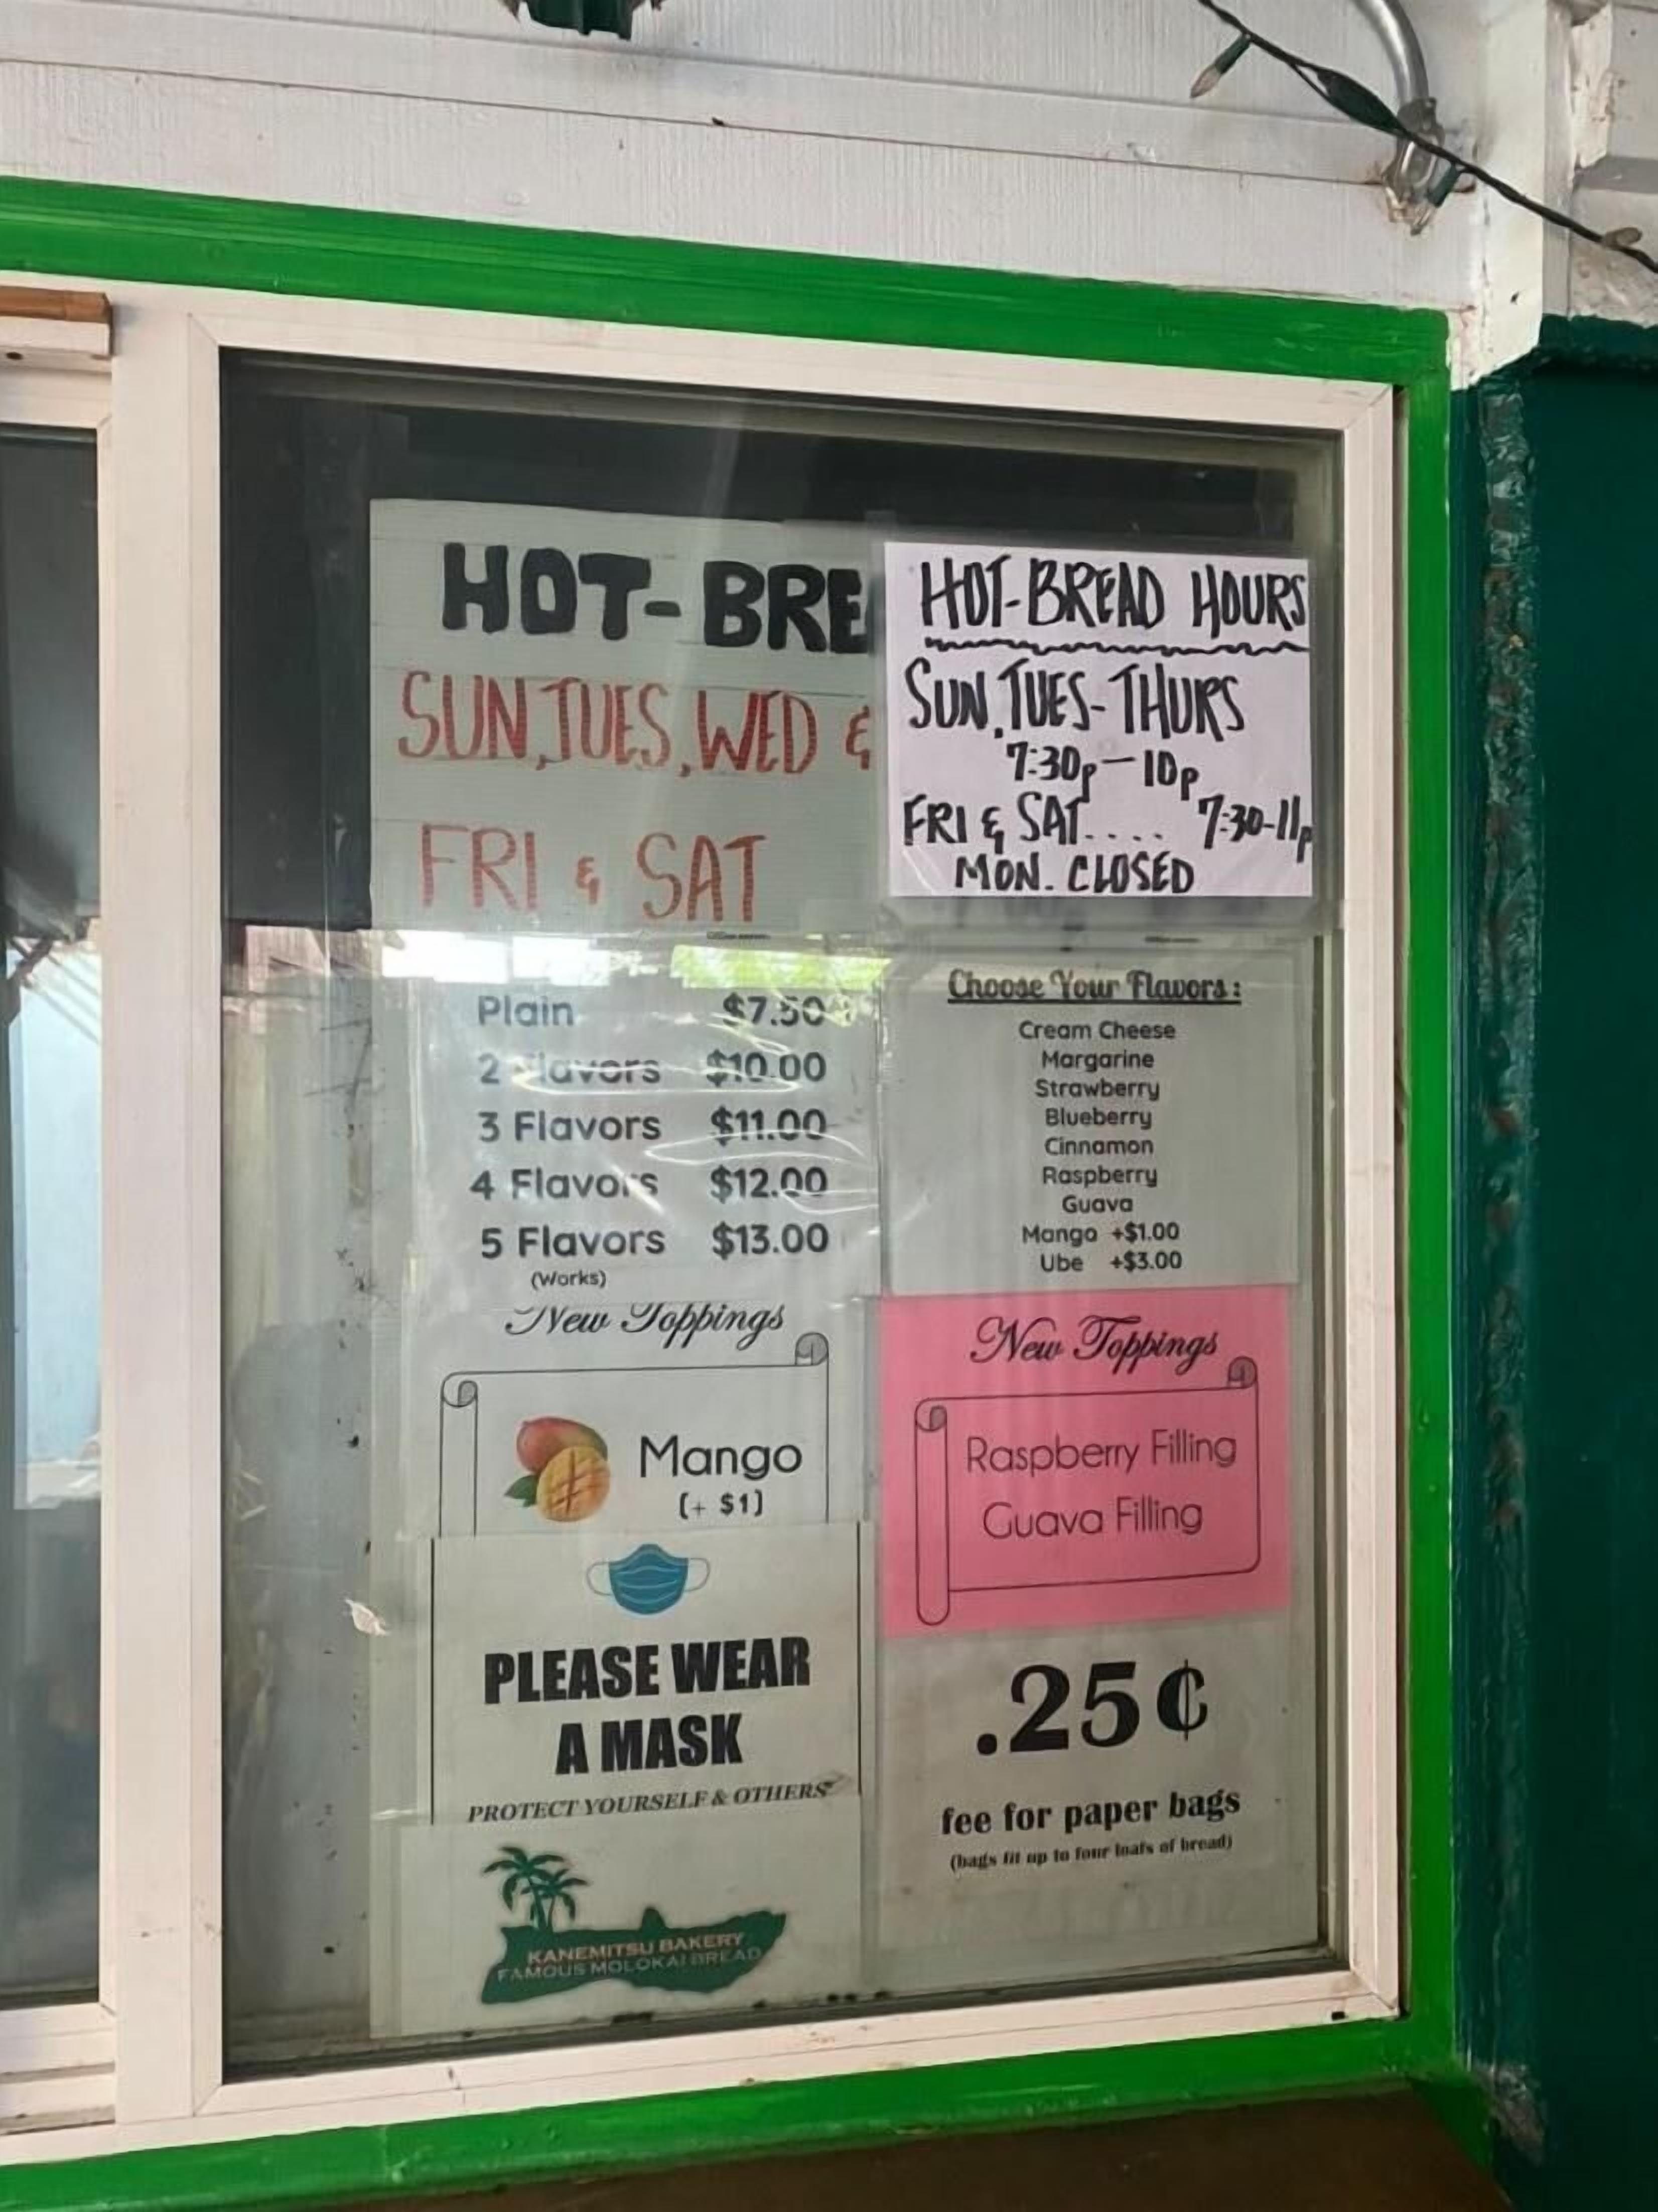 HOT-BRE
SUN, TUES, WED &
FRI & SAT
HOT-BREAD HOURS
SUN, TUES-THURS
7:30p-10p
FRI & SAT.... 7:30-11p
MON. CLOSED
Plain $7.50
2 Flavors $10.00
3 Flavors $11.00
4 Flavors $12.00
5 Flavors $13.00
(Works)
Choose Your Flavors:
Cream Cheese
Margarine
Strawberry
Blueberry
Cinnamon
Raspberry
Guava
Mango +$1.00
Ube +$3.00
New Toppings
Mango
(+ $1)
New Toppings
Raspberry Filling
Guava Filling
PLEASE WEAR
A MASK
PROTECT YOURSELF & OTHERS
.25¢
fee for paper bags
(bags fit up to four loafs of bread)
KANEMITSU BAKERY
FAMOUS MOLOKAI BREAD